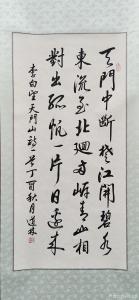 天門中断楚江開碧水
東流至北迴兩岸青山相
對出孤帆一片日邊來
李白望天門山詩一首丁酉秋月道林